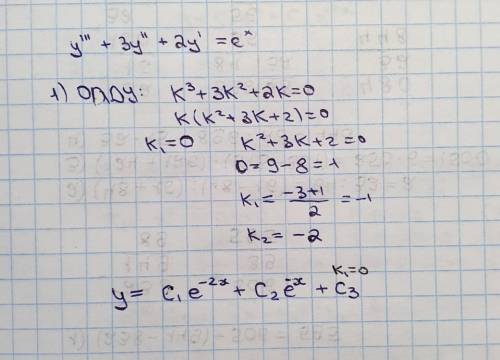 y''' + 3y'' + 2y' = e^x
1) ОЛДУ: k³+3k²+2k=0
k(k²+3k+2)=0
k₁=0 k²+3k+2=0
D=9-8=1
k₁= (-3+1)/2 =-1
k₂= -2
k₁=0
y= C₁e^(-2x) + C₂e^(-x) + C₃